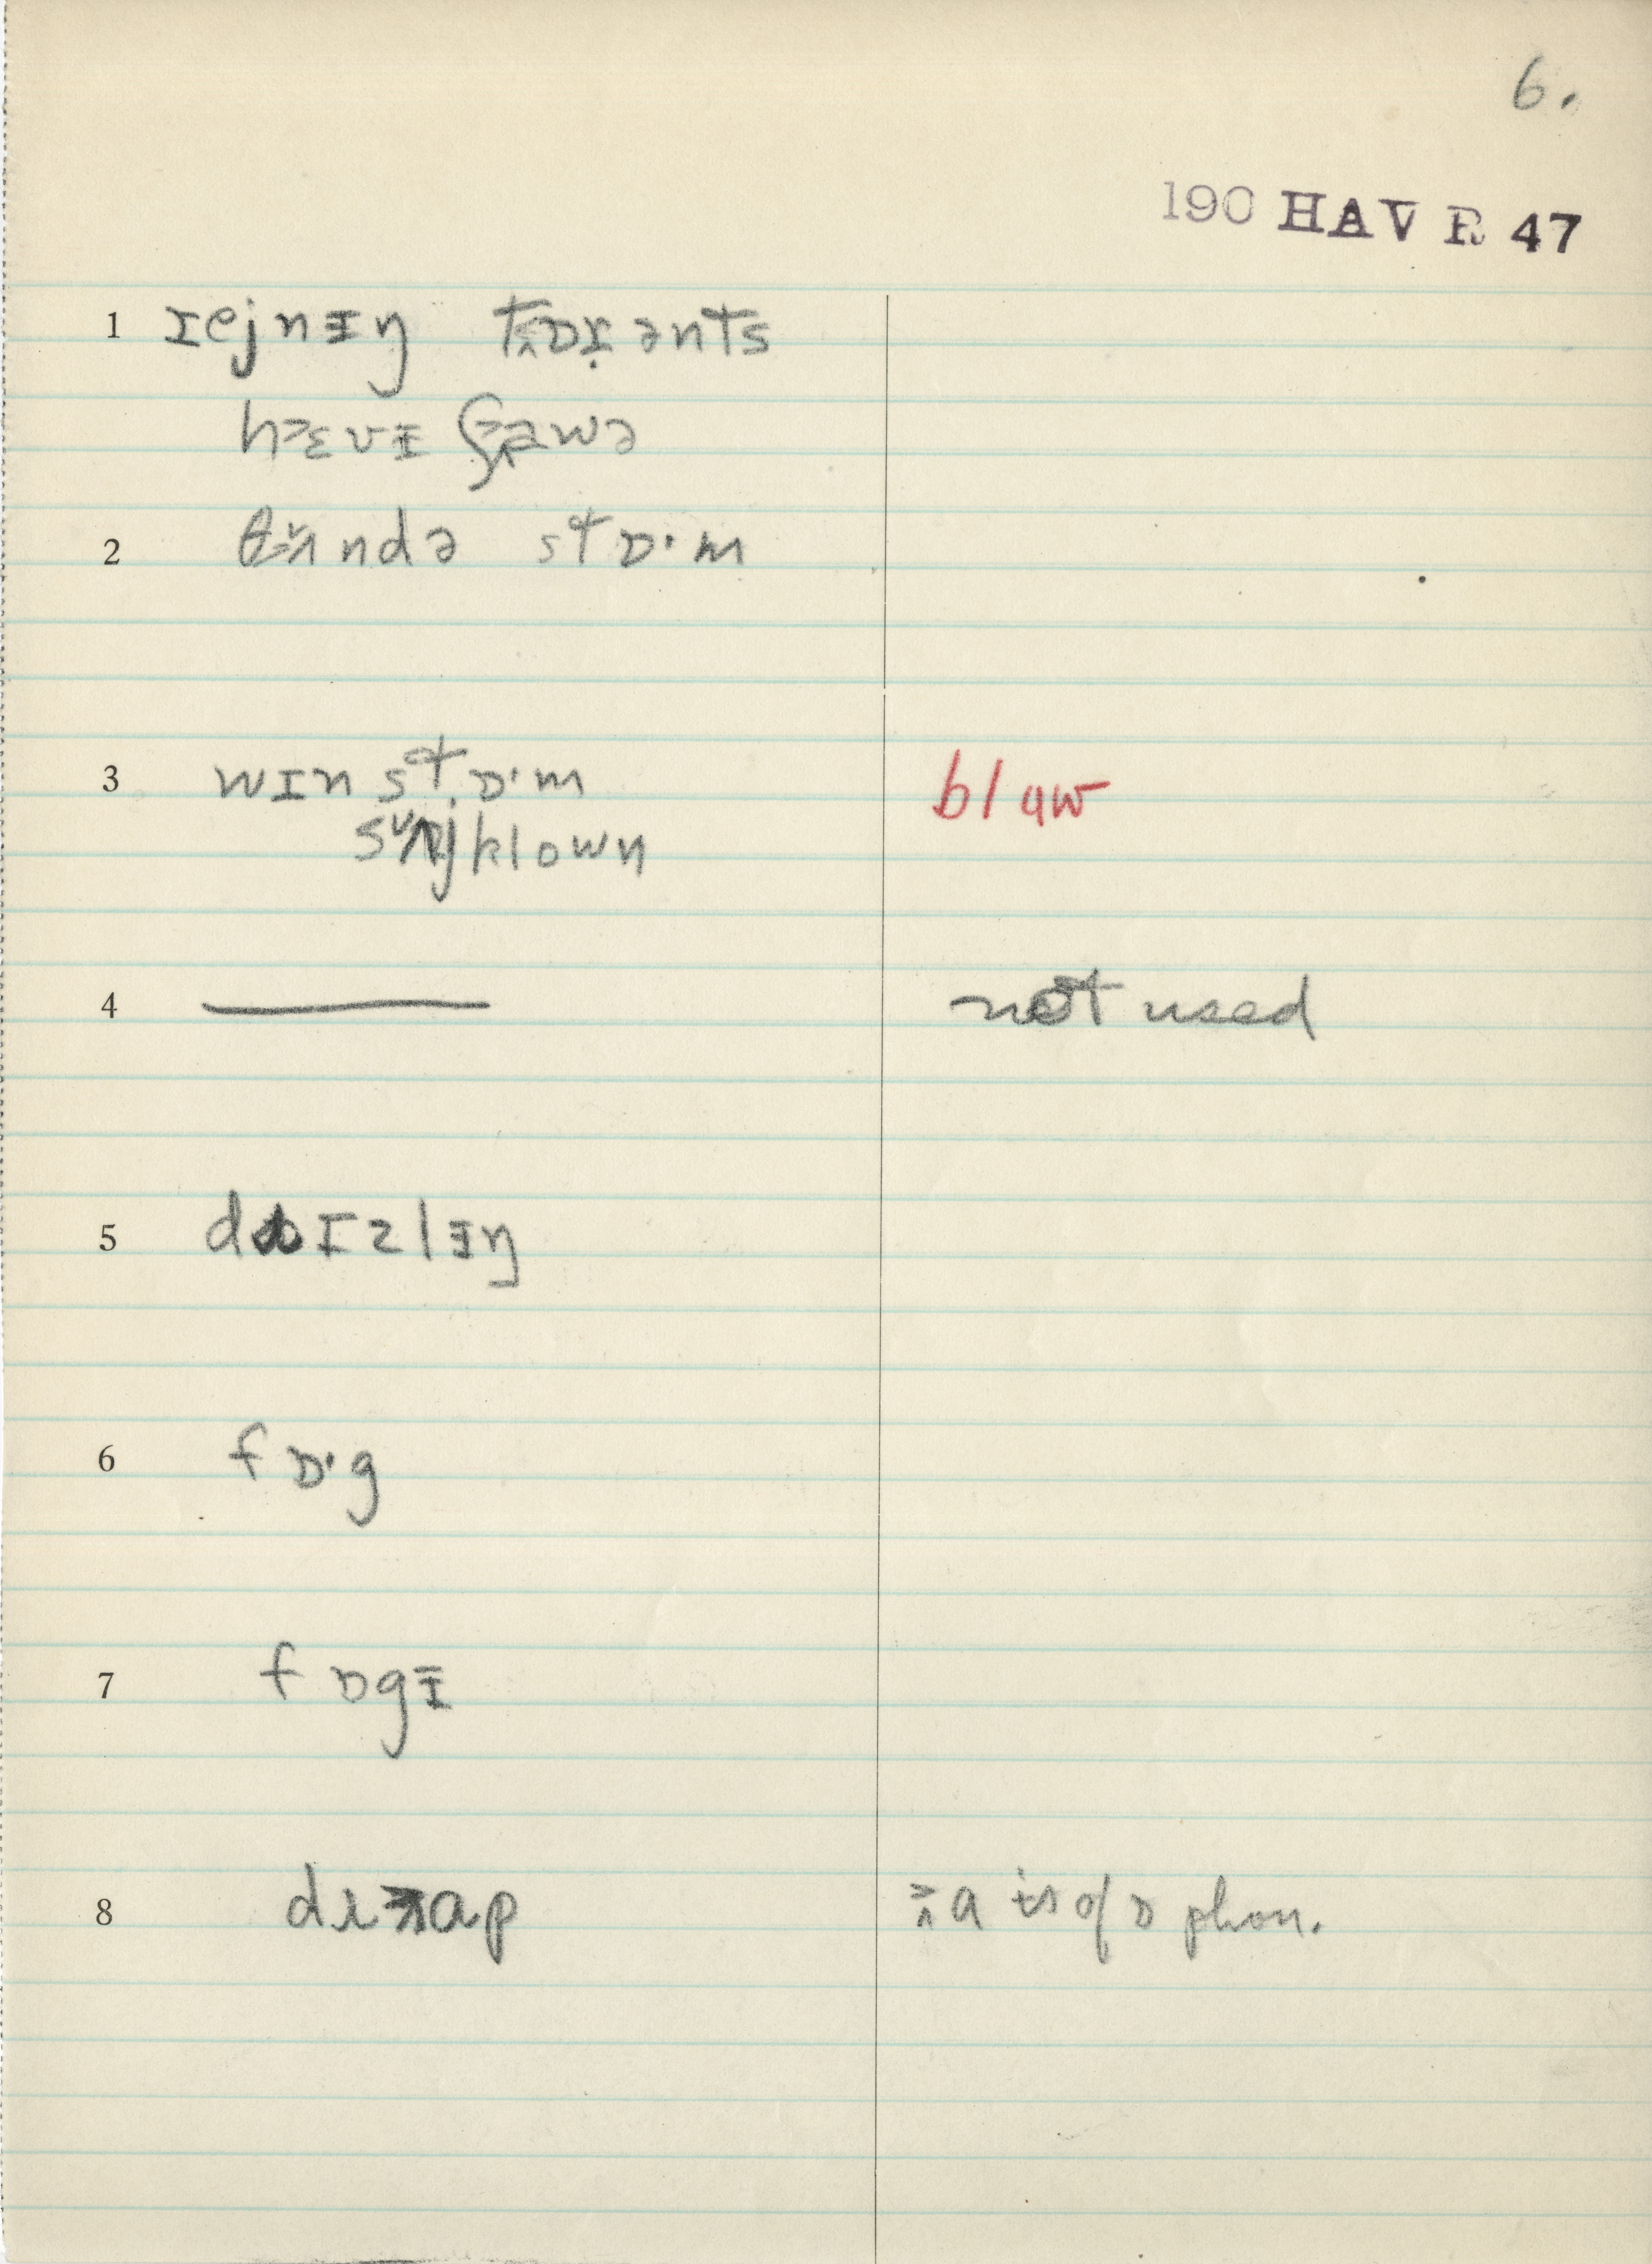 6.
190 HAV R 47
1 ɪejnɨŋ tɒɪənts
hɛvɪ ʃawə
2 θʌndə stɒ·m
3 wɪn stɒ·m blaw
sʌjklown
4 —— not used
5 dɪzlɨŋ
6 fɒ·g
7 fɒgɪ
8 ap a is of ɒ phon.